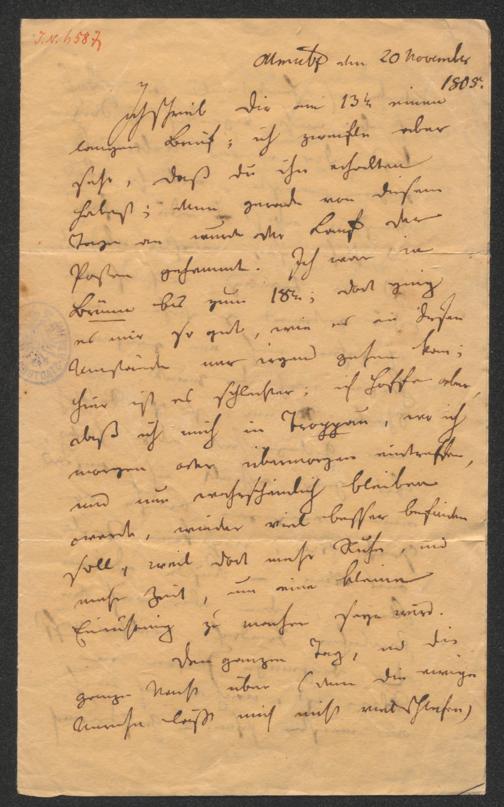 J.N. 6587
Olmütz den 20 November
1805.
Ich schrieb Dir am 13t. einen
langen Brief; ich zweifle aber
sehr, daß du ihn erhalten
habest; denn gerade von diesem
Tage an wurde der Lauf der
Posten gehemmt. Ich war in
Brünn bis zum 18t.; dort ging
es mir so gut, wie es in diesen
Umständen nur irgend gehen kan;
hier ist es schlechter; ich hoffe aber,
daß ich mich in Troppau, wo ich
morgen oder übermorgen eintreffen,
und nun wahrscheinlich bleiben
werde, wieder viel besser befinden
soll, weil dort mehr Ruhe, und
mehr Zeit, um eine kleine
zu machen seyn wird.
Den ganzen Tag, und die
ganze Nacht über (denn die ewige
Unruhe läßt mich nicht viel schlafen)